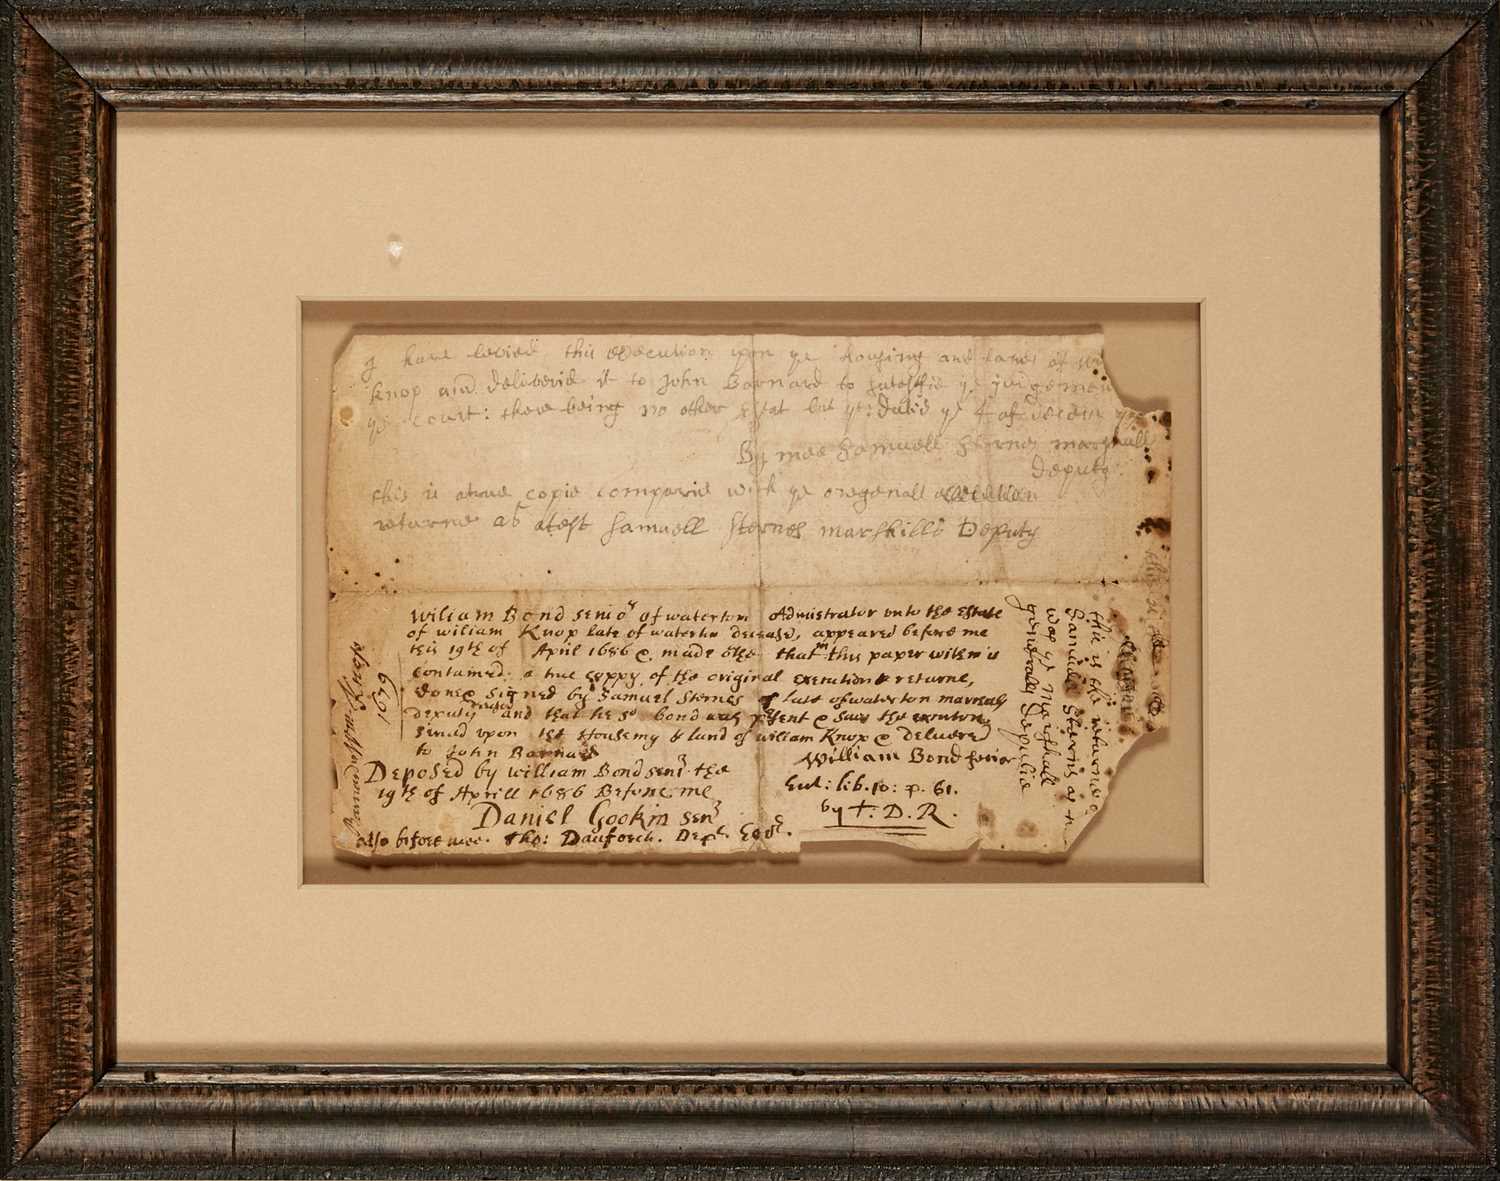 I have levied this execution upon ye housing and land of
knop and deliverid it to John Barnard to satesfie ye judgemen
ye court: there being no other Estat
By mee Samuell Sternes marshall
Deputy
this is atrue copie comparid with ye oregenall execution
returne as atest Samuell Sternes marshills Deputy
William Bond senior of waterton Admistrator unto the Estate
of wiliam Knop late of waterton deceased, appeared before me
this 19th of April 1686 & made othe that this paper within is
contained a true coppy of the original execution & returne,
done & signed by Samuel Sternes late of waterton marshals
deputy and that he sd bond was present & saw the execution
served upon the Housing & land of wiliam Knop & delivered
to John Barnard
William Bond senior
Deposed by William Bond senr the
19th of Aprill 1686 Before me
Daniel Gookin senr
also before mee. Tho: Danforth. Dept.
Ent: lib. 10: p. 61.
by T. D. R.
this is the returne of
Samuel Sternes as
was ye Marshall
generalls deputie
1679